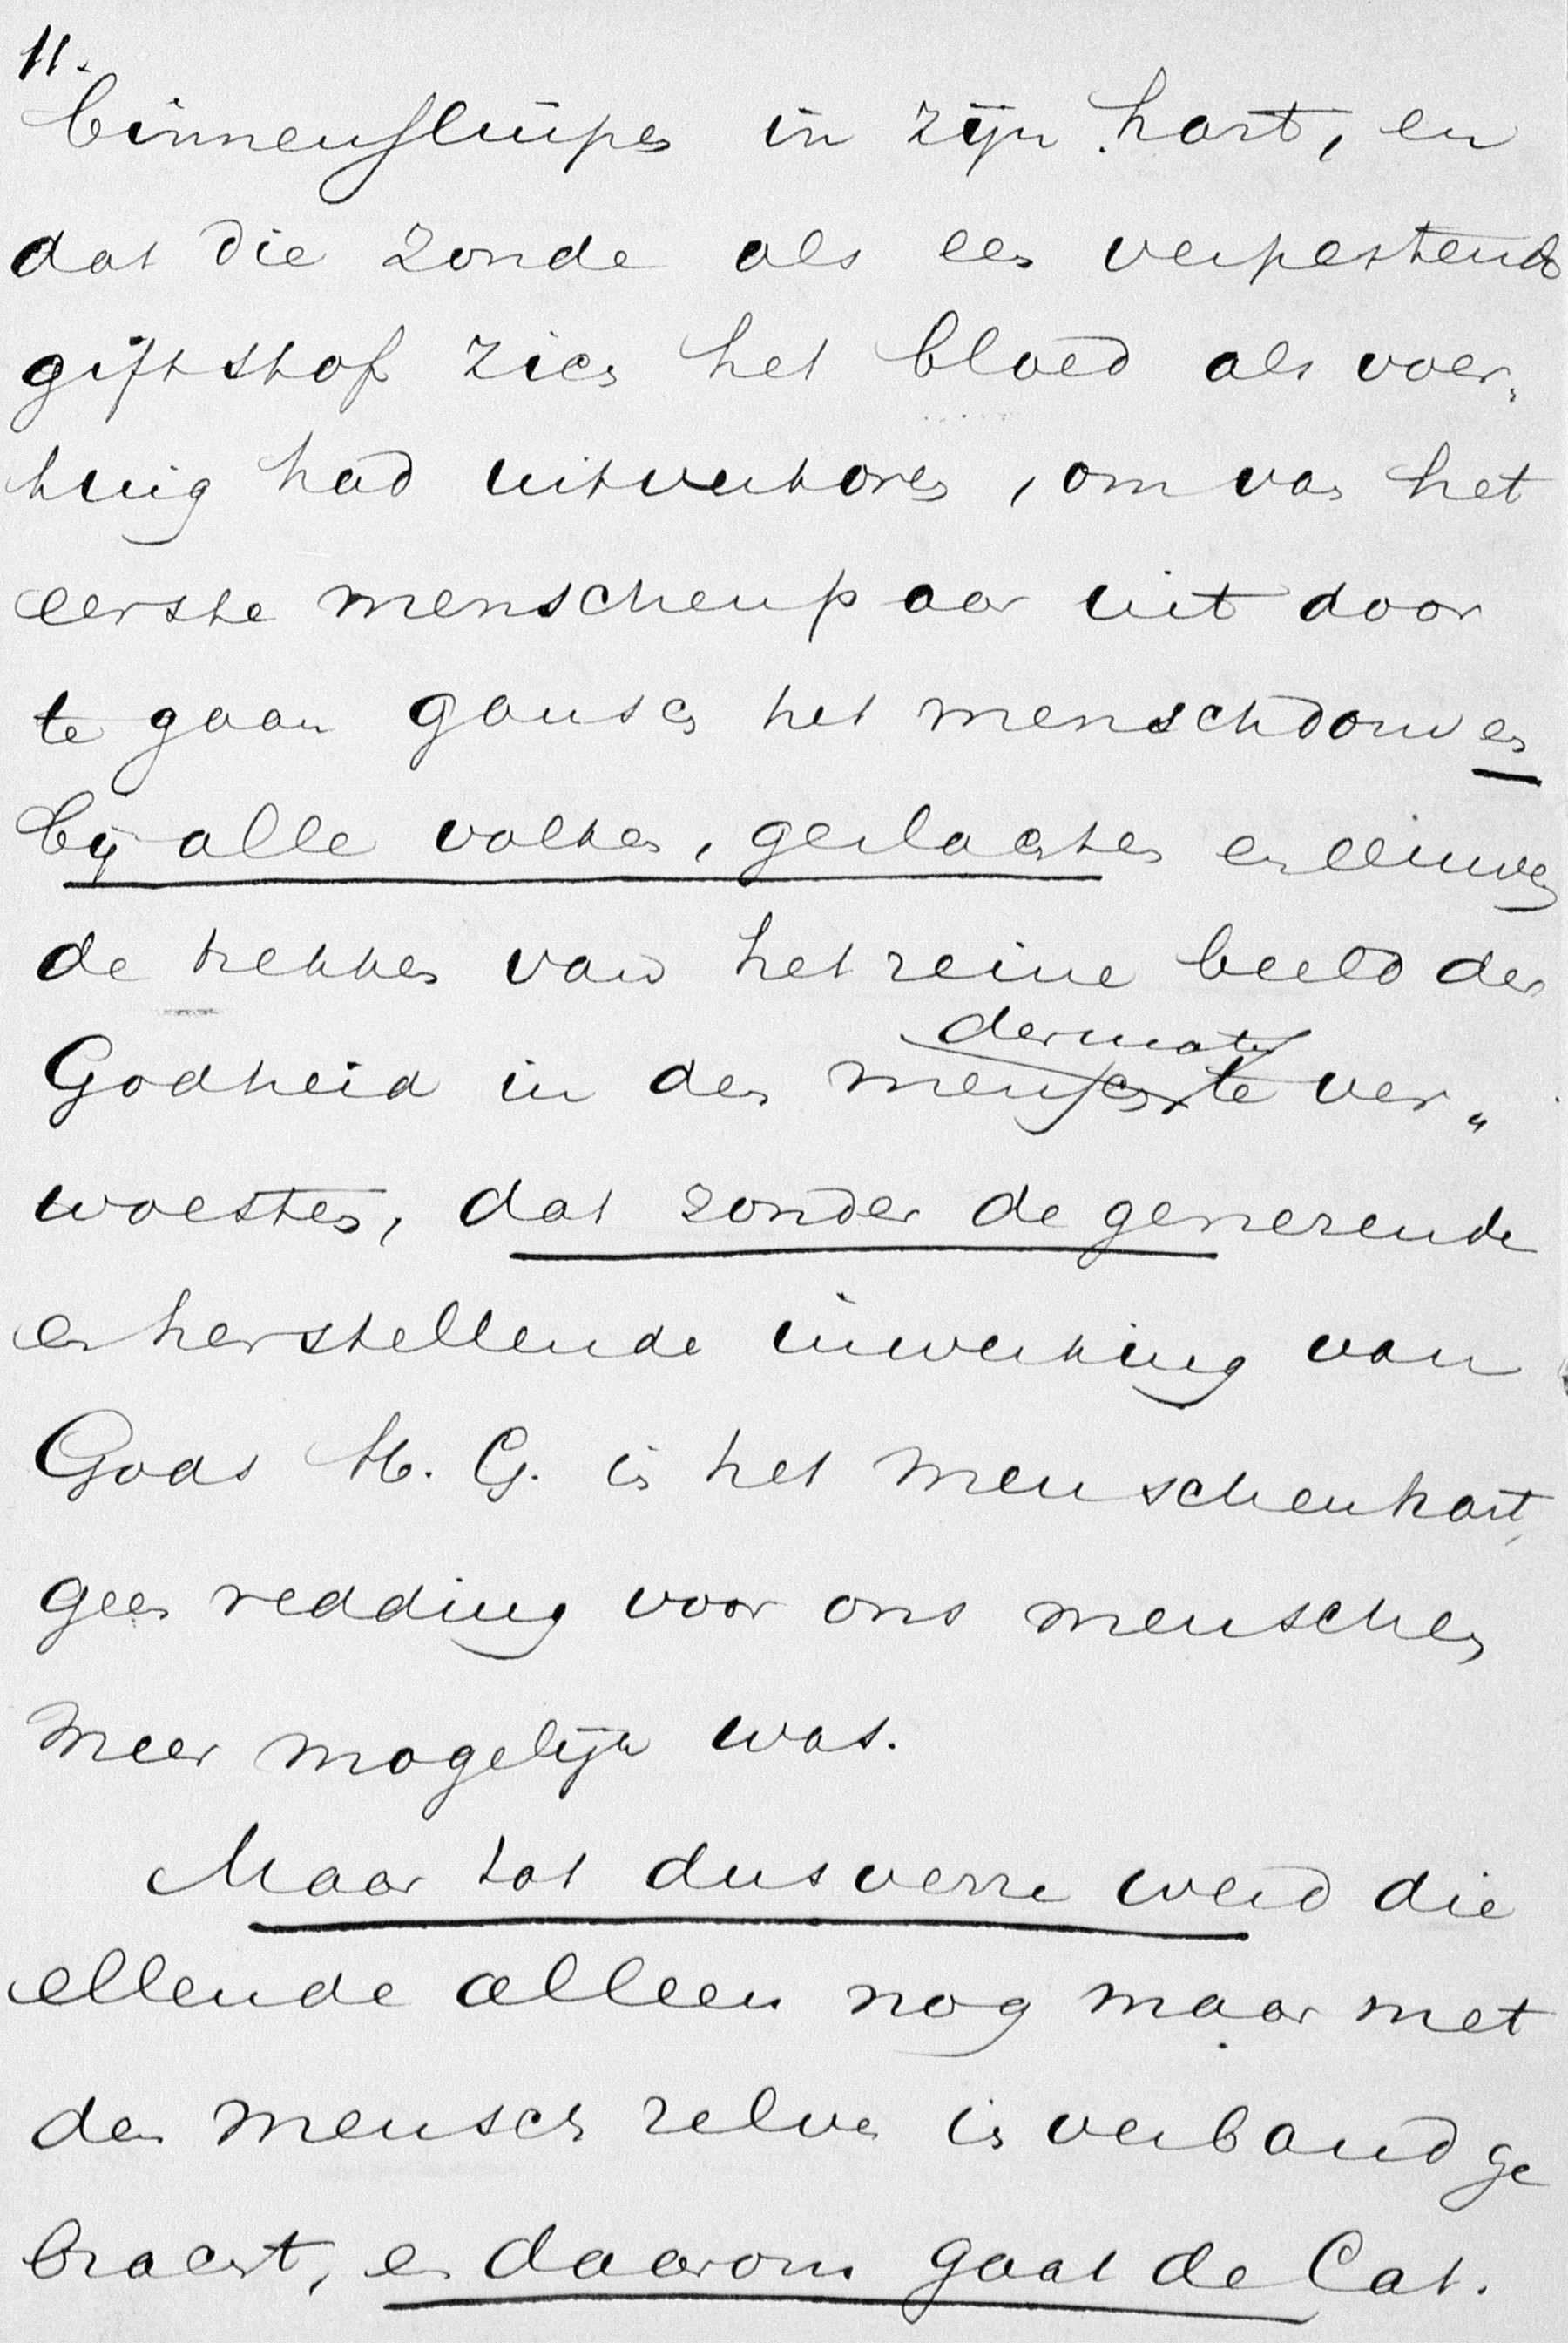 11.
binnensluipen in zijn hart, en
dat die zonde als een verpestende
giftstof zich het bloed als voer„
tuig had uitverkoren, om van het
eerste menschenpaar uit door
te gaan gansch het menschdom en
bij alle volken, geslachten en eeuwen
de trekken van het reine beeld der
Godheid in den mensch dermate te ver„
woesten, dat zonder de genezende
en herstellende inwerking van
Gods H. G. in het menschenhart,
geen redding voor ons menschen
meer mogelijk was.
Maar tot dusverre werd die
ellende alleen nog maar met
den mensch zelven in verband ge
bracht, en daarom gaat de Cat.